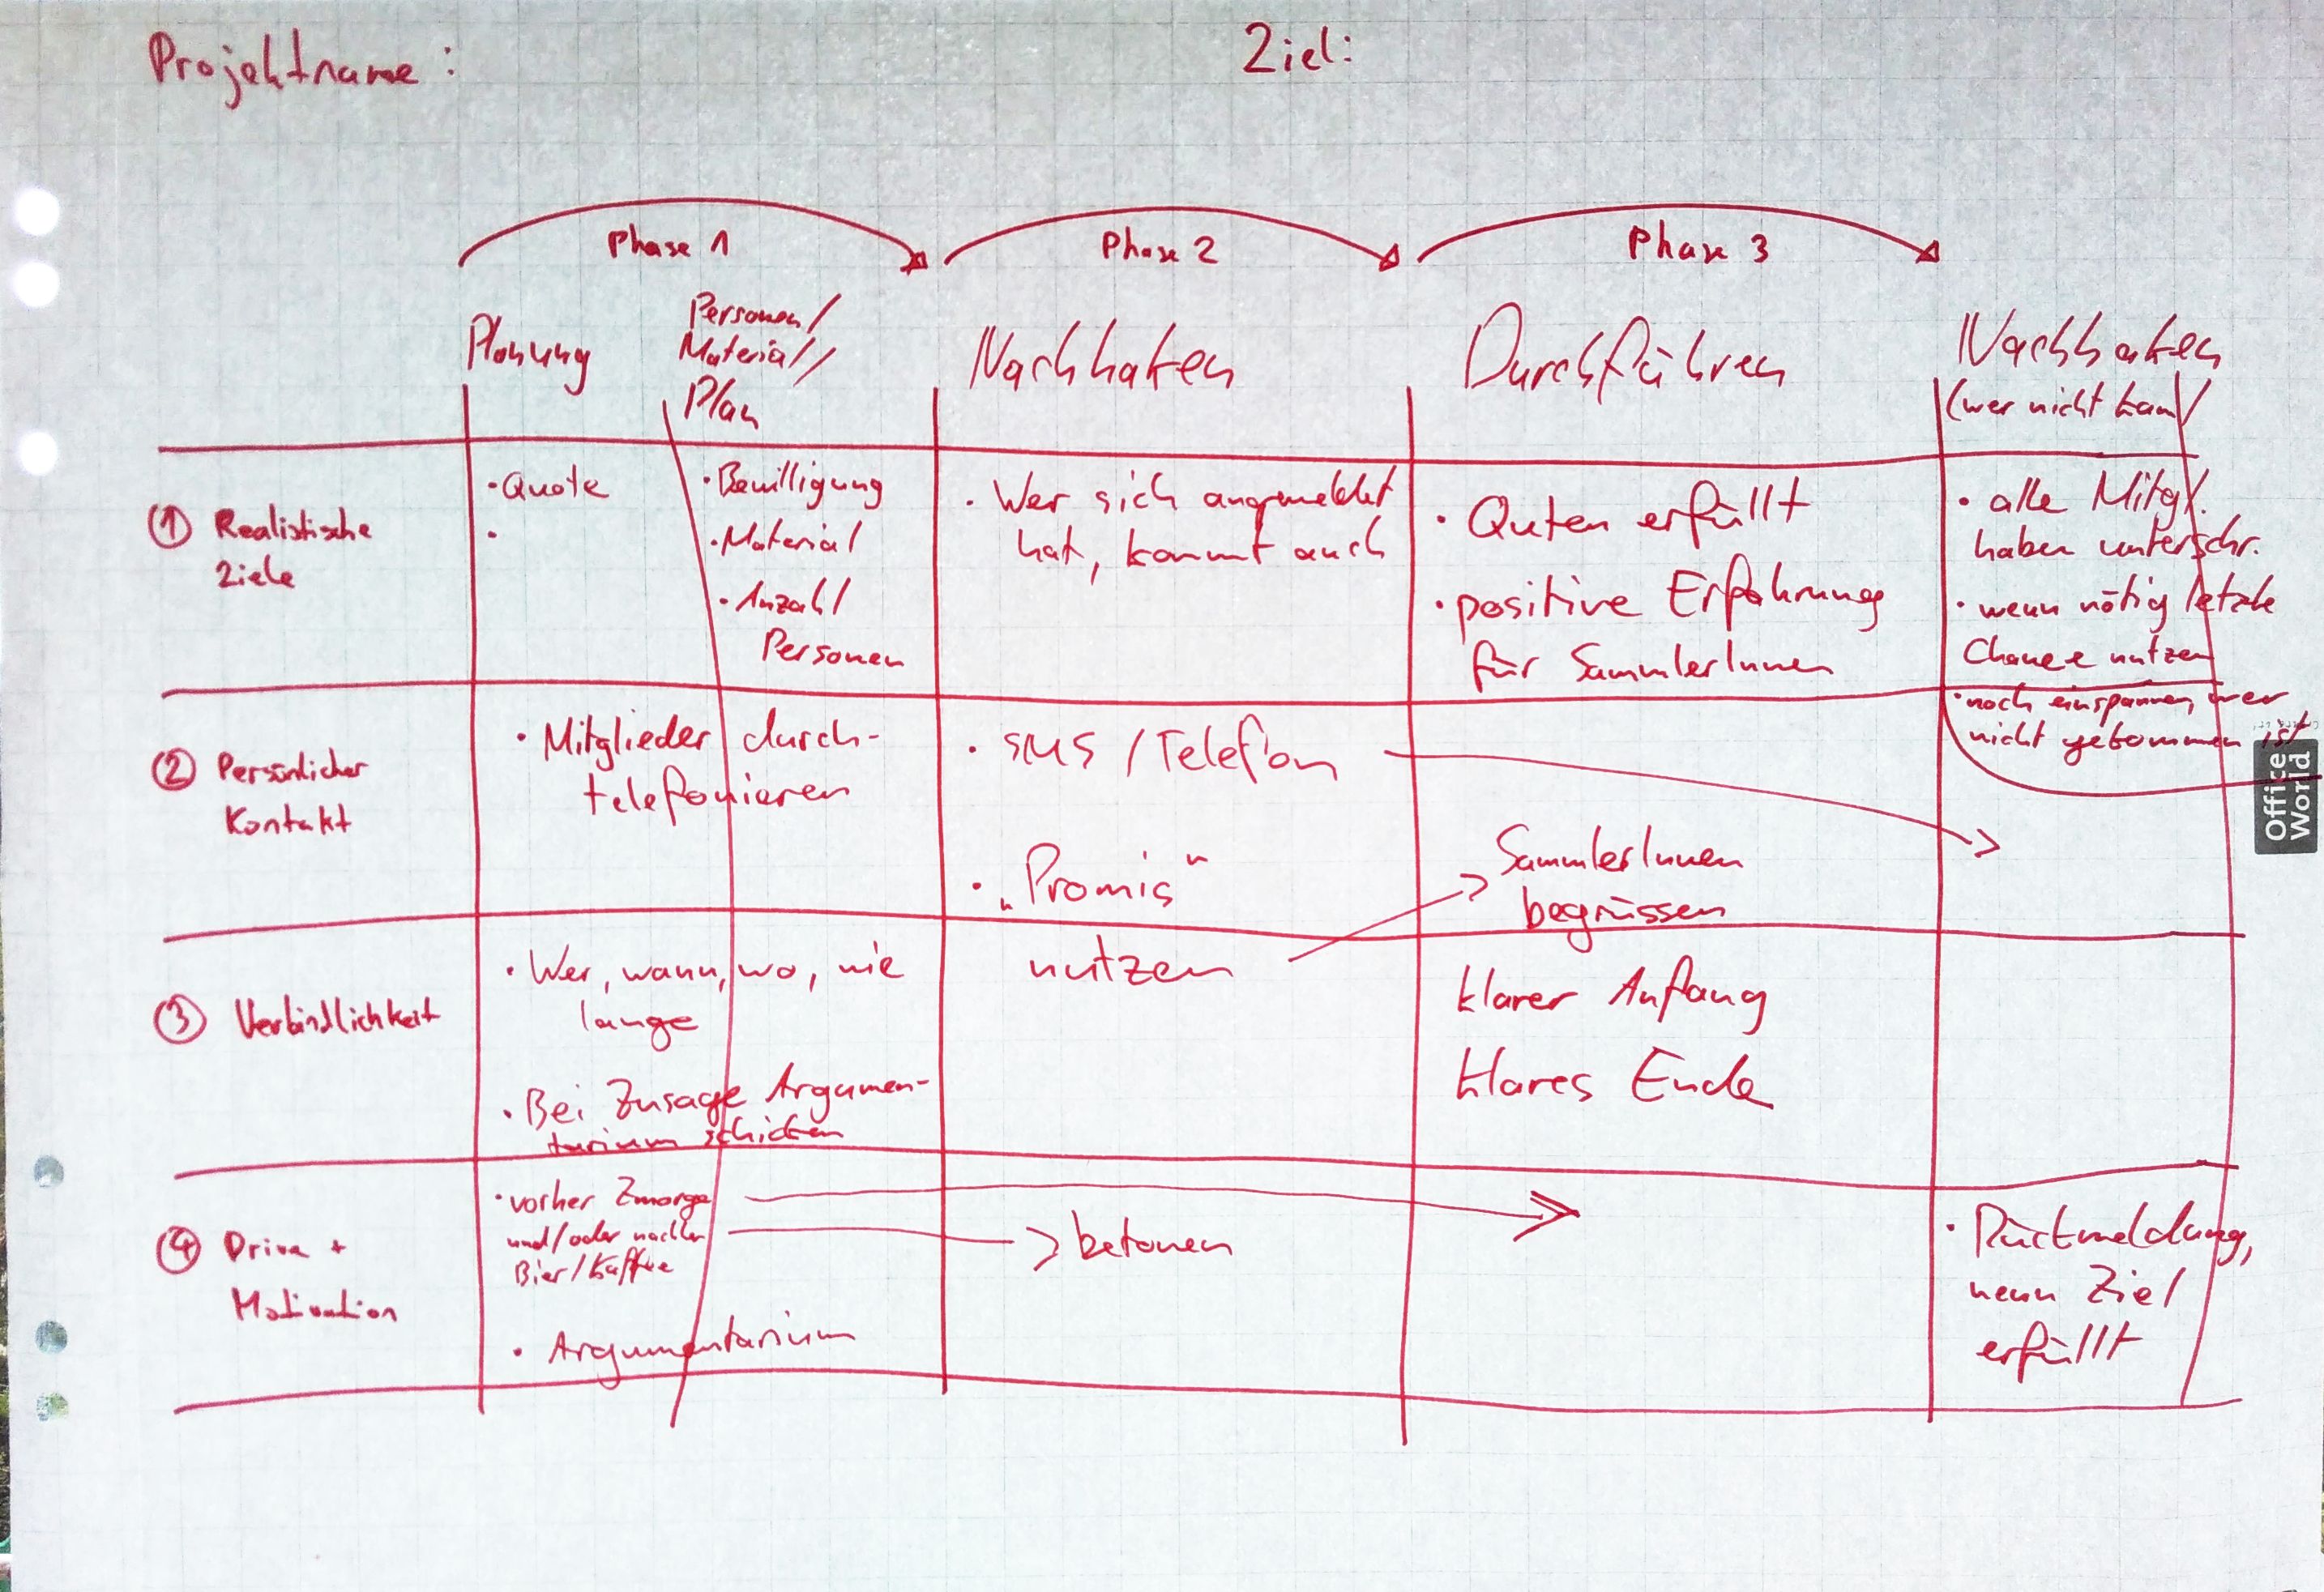 Projektname :
Ziel:
Phase 1
Phase 2
Phase 3
Planung
Personen/
Material/
Plan
Nachhaken
Durchführen
Nachhaken
(wer nicht kam)
① Realistische
Ziele
• Quote
•
• Bewilligung
• Material
• Anzahl
Personen
• Wer sich angemeldet
hat, kommt auch
• Quten erfüllt
• positive Erfahrung
für SammlerInnen
• alle Mitgl.
haben unterschr.
• wenn nötig letzte
Chance nutzen
② Persönlicher
Kontakt
• Mitglieder durch-
telefonieren
• SMS / Telefon
• „Promis"
nutzen
SammlerInnen
begrüssen
• noch einspannen, wer
nicht gekommen ist
③ Verbindlichkeit
• Wer, wann, wo, wie
lange
• Bei Zusage Argumen-
tarium schicken
klarer Anfang
klares Ende
④ Drive +
Motivation
• vorher Zmorge
und/oder nachher
Bier/Kaffee
• Argumentarium
betonen
• Rückmeldung,
wenn Ziel
erfüllt
Office
World